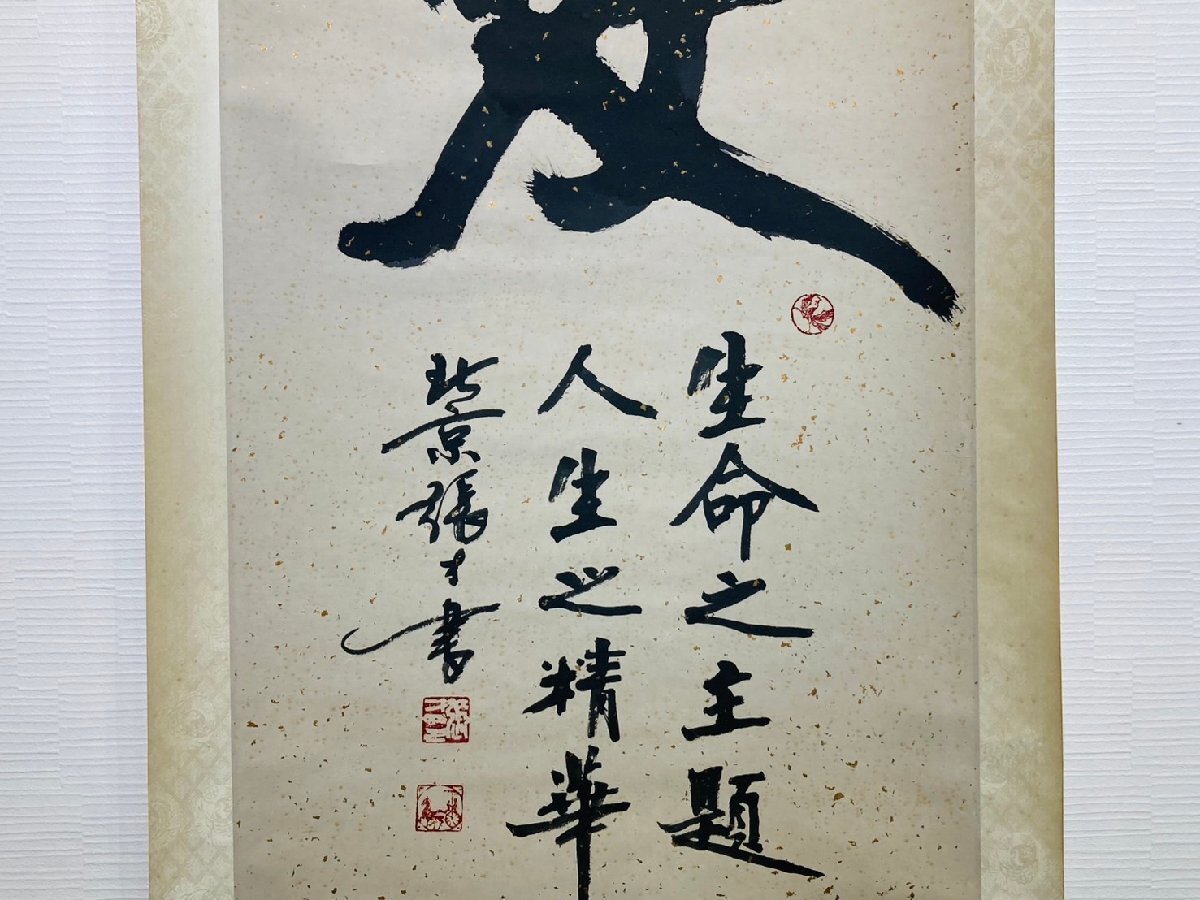 生命之主題
人生之精華
北京張才書